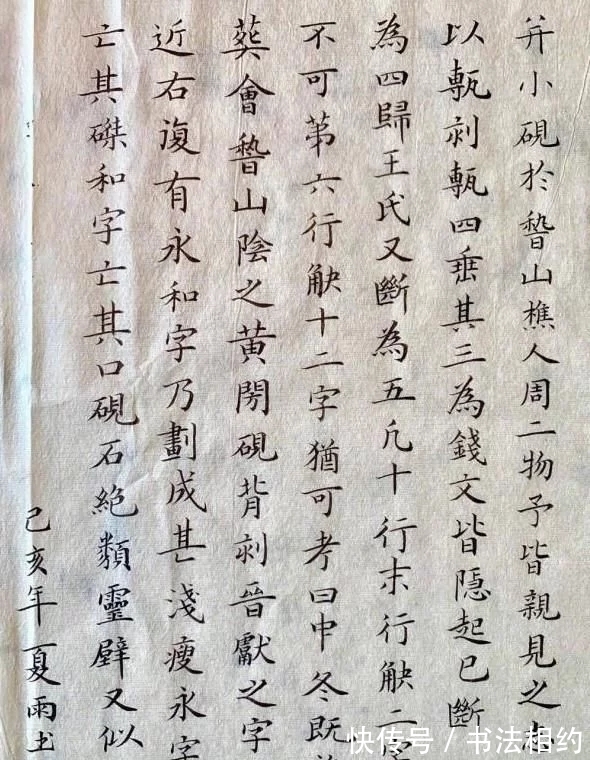 并小硯於稽山樵人周二物予皆親見之
以甎刻甎四垂其三為錢文皆隱起已斷
為四歸王氏又斷為五凡十行末行觖二字
不可第六行觖十二字猶可考曰中冬既
葬會稽山陰之黃閍硯背刻晉獻之字
近右復有永和字乃劃成甚淺瘦永字
亡其磔和字亡其口硯石絶類靈壁又似
己亥年夏雨
快传号 / 书法相约